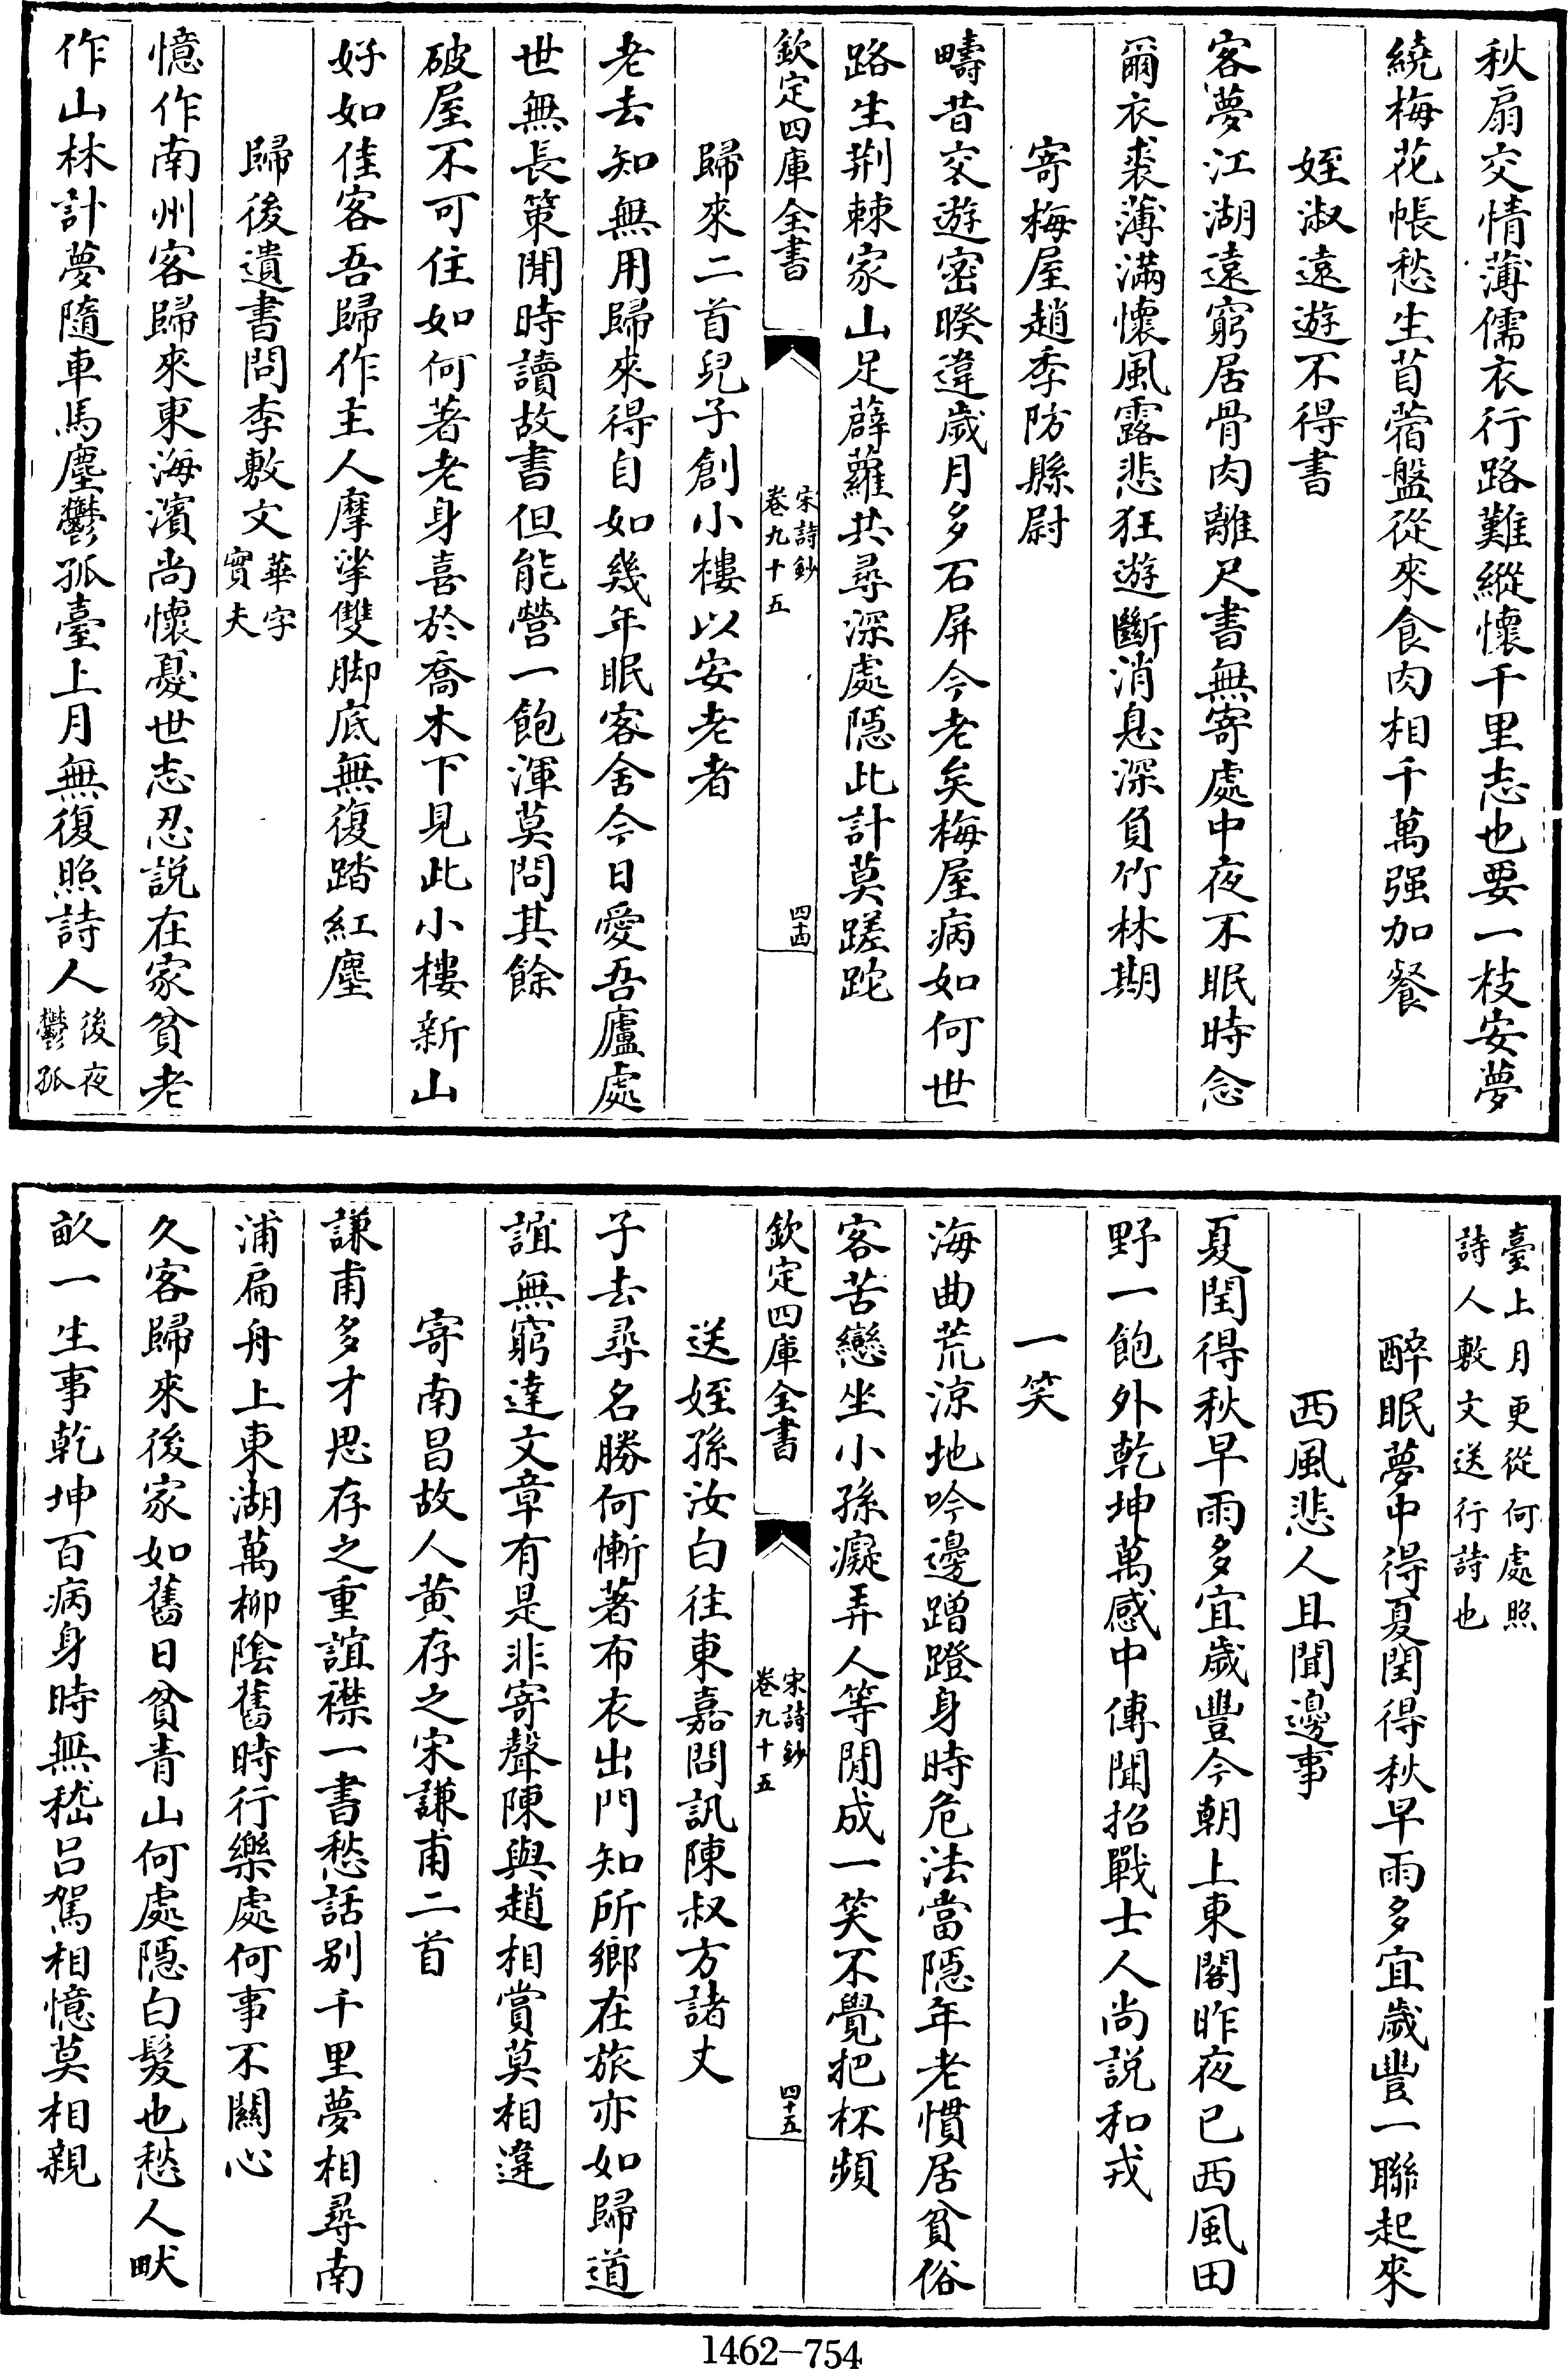 秋扇交情薄儒衣行路難縱懷千里志也要一枝安夢
繞梅花帳愁生苜蓿盤從來食肉相千萬强加餐
姪淑遠遊不得書
客夢江湖遠窮居骨肉離尺書無寄處中夜不眠時念
爾衣裘薄滿懷風露悲狂遊斷消息深負竹林期
寄梅屋趙季防縣尉
疇昔交遊密暌違歲月多石屏今老矣梅屋病如何世
路生荆棘家山足薜蘿共尋深處隱此計莫蹉跎
欽定四庫全書
宋詩鈔
卷九十五
四十四
歸來二首兒子創小樓以安老者
老去知無用歸來得自如幾年眠客舍今日愛吾廬處
世無長策閒時讀故書但能營一飽渾莫問其餘
破屋不可住如何著老身喜於喬木下見此小樓新山
好如佳客吾歸作主人摩挲雙脚底無復踏紅塵
歸後遺書問李敷文華字
實夫
憶作南州客歸來東海濱尚懷憂世志忍説在家貧老
作山林計夢隨車馬塵鬱孤臺上月無復照詩人後夜
鬱孤
臺上月更從何處照
詩人敷文送行詩也
醉眠夢中得夏閏得秋早雨多宜歲豐一聯起來
西風悲人且聞邊事
夏閏得秋早雨多宜歲豐今朝上東閣昨夜已西風田
野一飽外乾坤萬感中傳聞招戰士人尚説和戎
一笑
海曲荒涼地吟邊蹭蹬身時危法當隱年老慣居貧俗
客苦戀坐小孫癡弄人等閒成一笑不覺把杯頻
欽定四庫全書
宋詩鈔
卷九十五
四十五
送姪孫汝白往東嘉問訊陳叔方諸丈
子去尋名勝何慚著布衣出門知所鄉在旅亦如歸道
誼無窮達文章有是非寄聲陳與趙相賞莫相違
寄南昌故人黄存之宋謙甫二首
謙甫多才思存之重誼襟一書愁話别千里夢相尋南
浦扁舟上東湖萬柳陰舊時行樂處何事不關心
久客歸來後家如舊日貧青山何處隱白髮也愁人畎
畝一生事乾坤百病身時無嵇吕駕相憶莫相親
1462-754